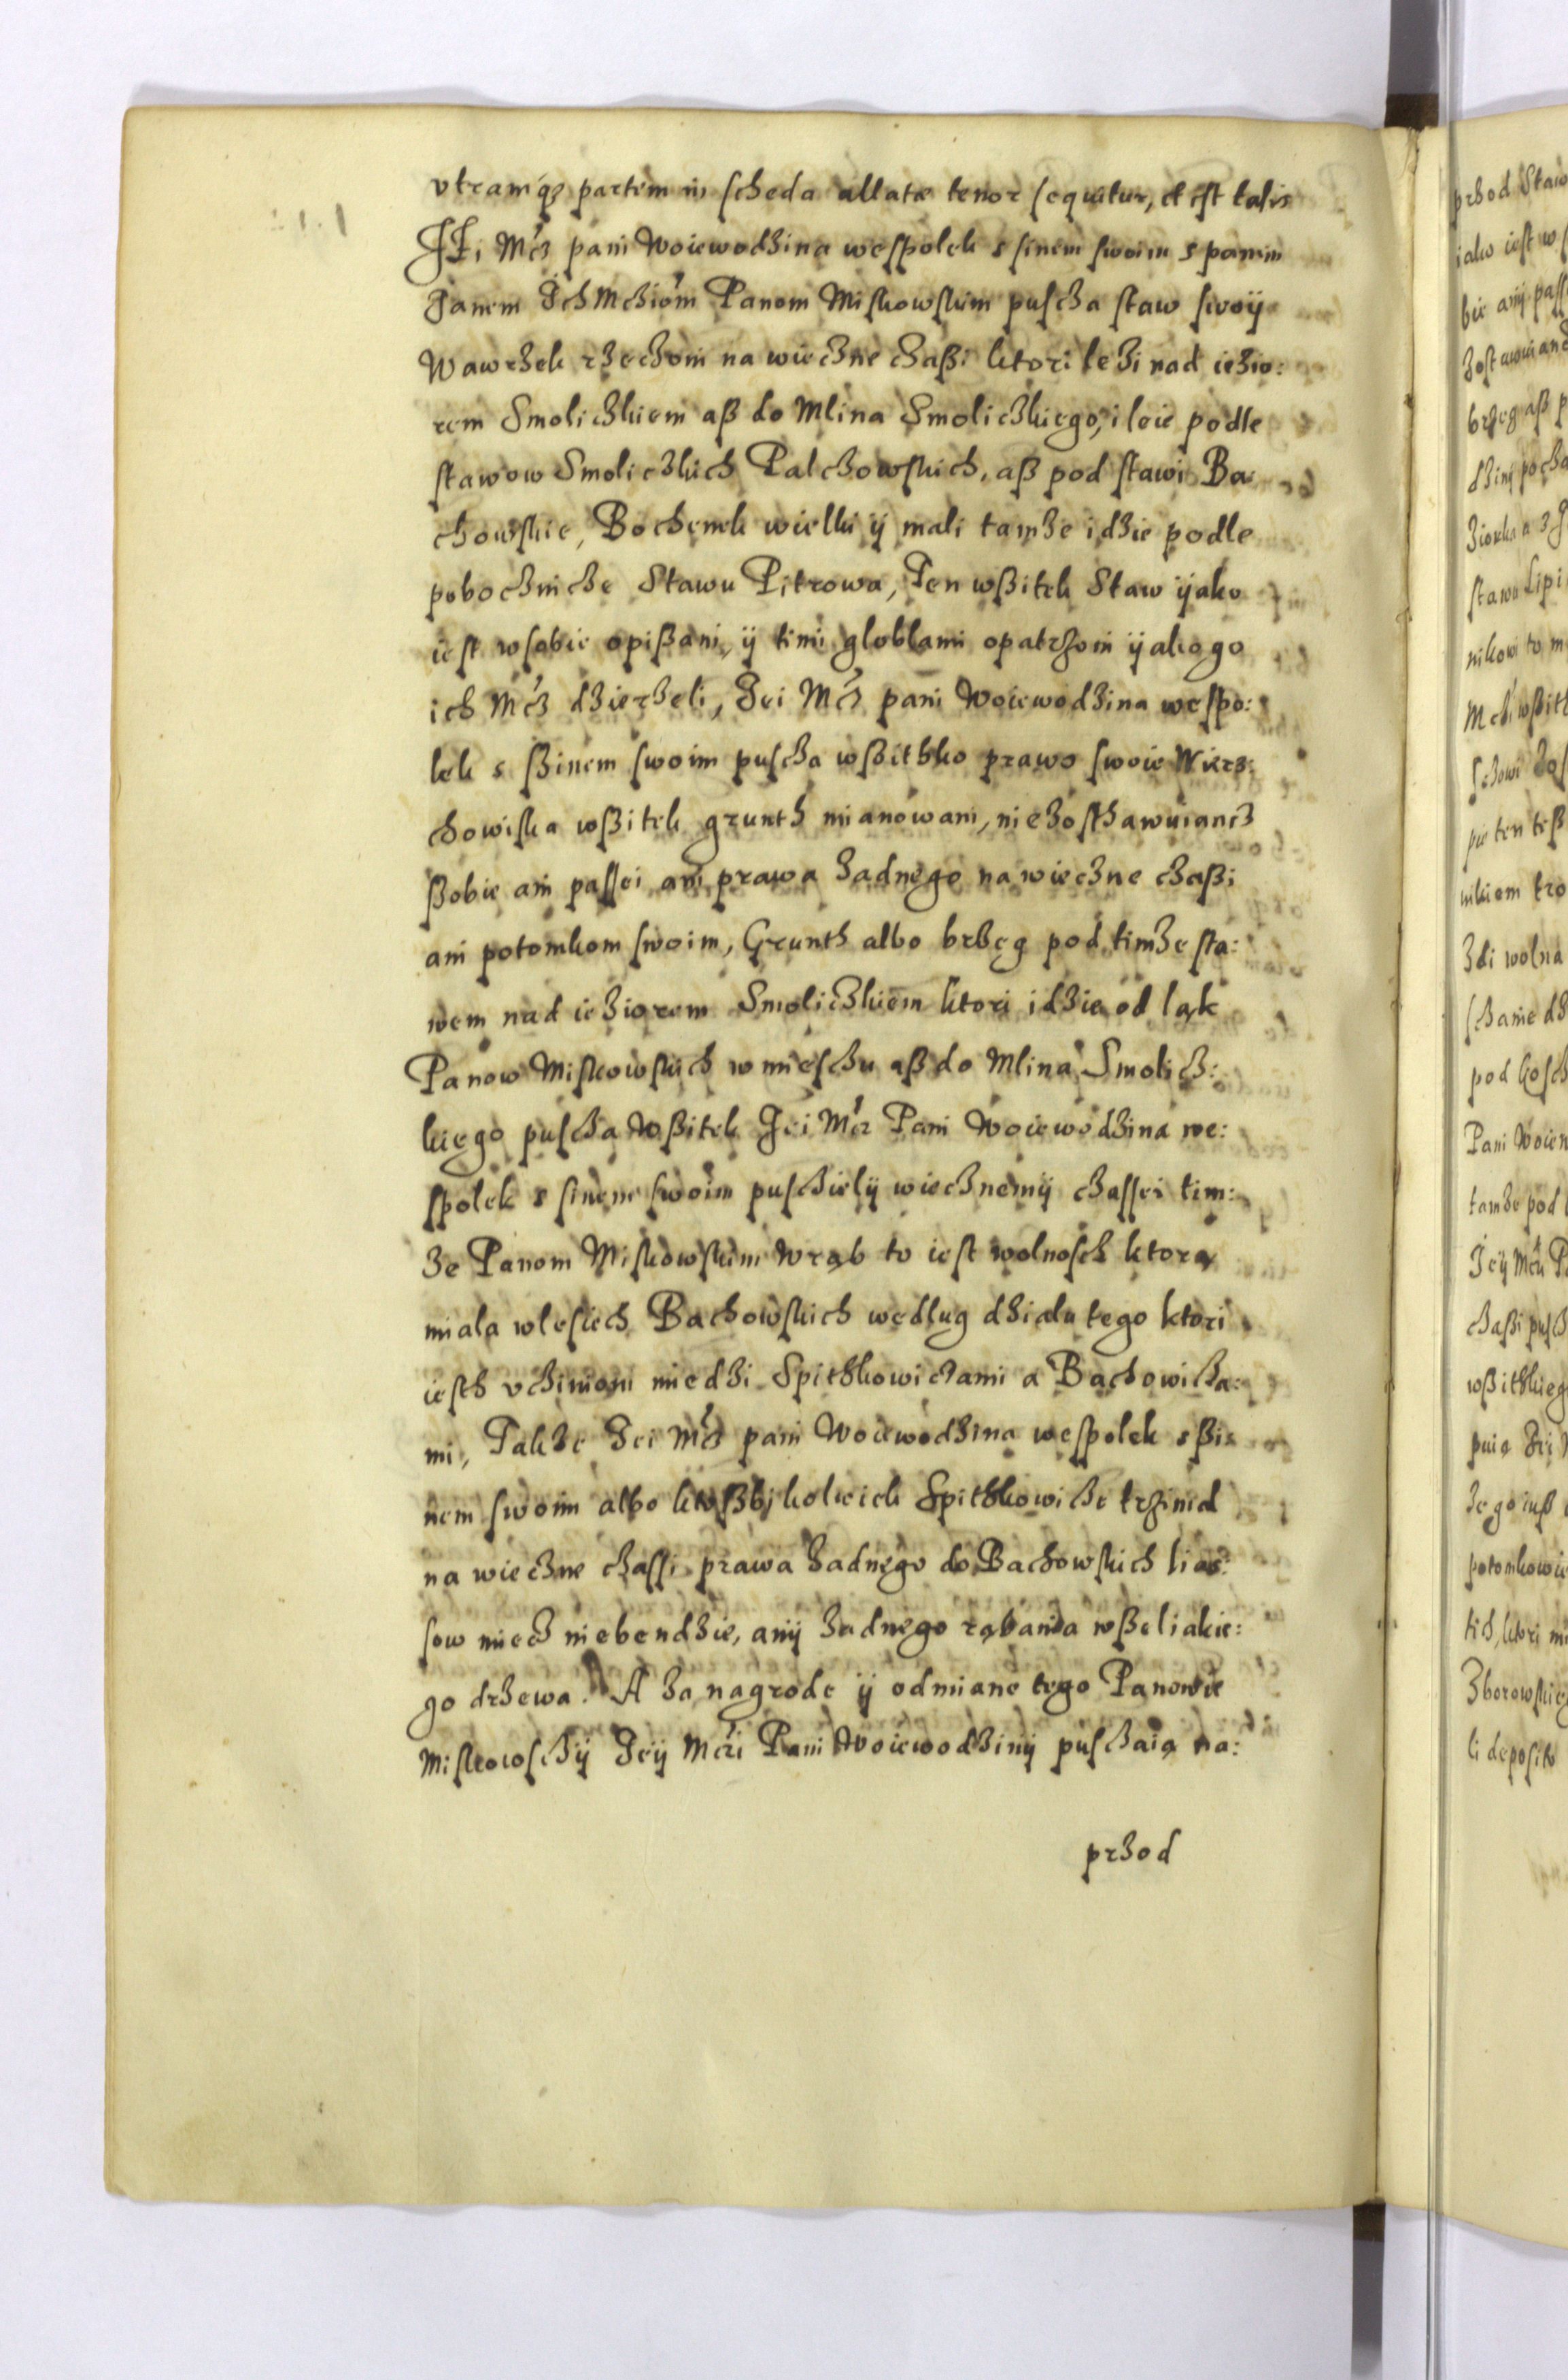 vtramq3 partem in scheda allatæ tenor sequitur, et est talis
JEi Mcz pani Woiewodzina wespolek s sinem swoim s panim
Janem Ich Mcziom Panom Miskowskim puscza staw swoij
Wawrzek rzeczoni na wieczne czaßi ktori lezi nad iezio:
rem Smoliczkiem aß do Mlina Smoliczkiego, i leie podle
stawow Smoliczkich Palczowskich, aß pod stawi Ba:
chowskie, Bochenek wielki ij mali tamze idzie podle
poboczniche Stawu Pitrowa, Ten wßitek Staw ijako
iest wsobie opißani, ij timi globlami opatrzoni ijakogo
ich Mcz dzierzeli, Jei Mcz pani Woiewodzina wespo:
lek s ßinem swoim puscza wßithko prawo swoie Wierz:
chowiska wßitek grunth mianowani, niezosthawuiancz
ßobie ani passei ani prawa zadnego na wieczne czaßi
ani potomkom swoim, Grunth albo brzeg pod timze sta:
wem nad ieziorem Smoliczkiem ktori idzie od ląk
Panow Miskowskich w mieschu aß do Mlina Smolicz:
kiego puscza wßitek Jei Mcz Pani Woiewodzina we:
spolek s sinem swoim puscziely wiecznemij czassei tim:
ze Panom Miskowskim Wrąb to iest wolnosch ktorą
miala wlesiech Bachowskich wedlug dzialu tego ktori
iesth vczinioni miedzi Spithkowiczami a Bachowicza:
mi, Takze Jei Mcz pani Woiewodzina wespolek s ßi:
nem swoim albo ktoßbj kolwiek Spithkowicze trzimal
na wieczne czassi prawa zadnego do Bachowskich lias:
sow miecz niebendzie, anij zadnego rąbania wßeliakie:
go drzewa. A za nagrode ij odmiane tego Panowie
Miskowsczij Jeij Mczi Pani Woiewodzinij pusczaią na:
przod